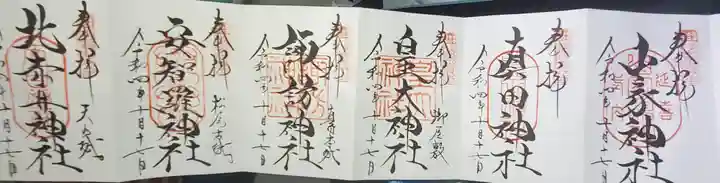 奉拝
山家神社
令和四年十月十七日
奉拝
真田神社
令和四年十月十七日
奉拝
御屋敷
皇太神社
令和四年十月十七日
奉拝
諏訪神社
令和四年十月十七日
奉拝
松尾古城
安智羅神社
令和四年十月十七日
奉拝
天白城
北赤井神社
令和四年十月十七日